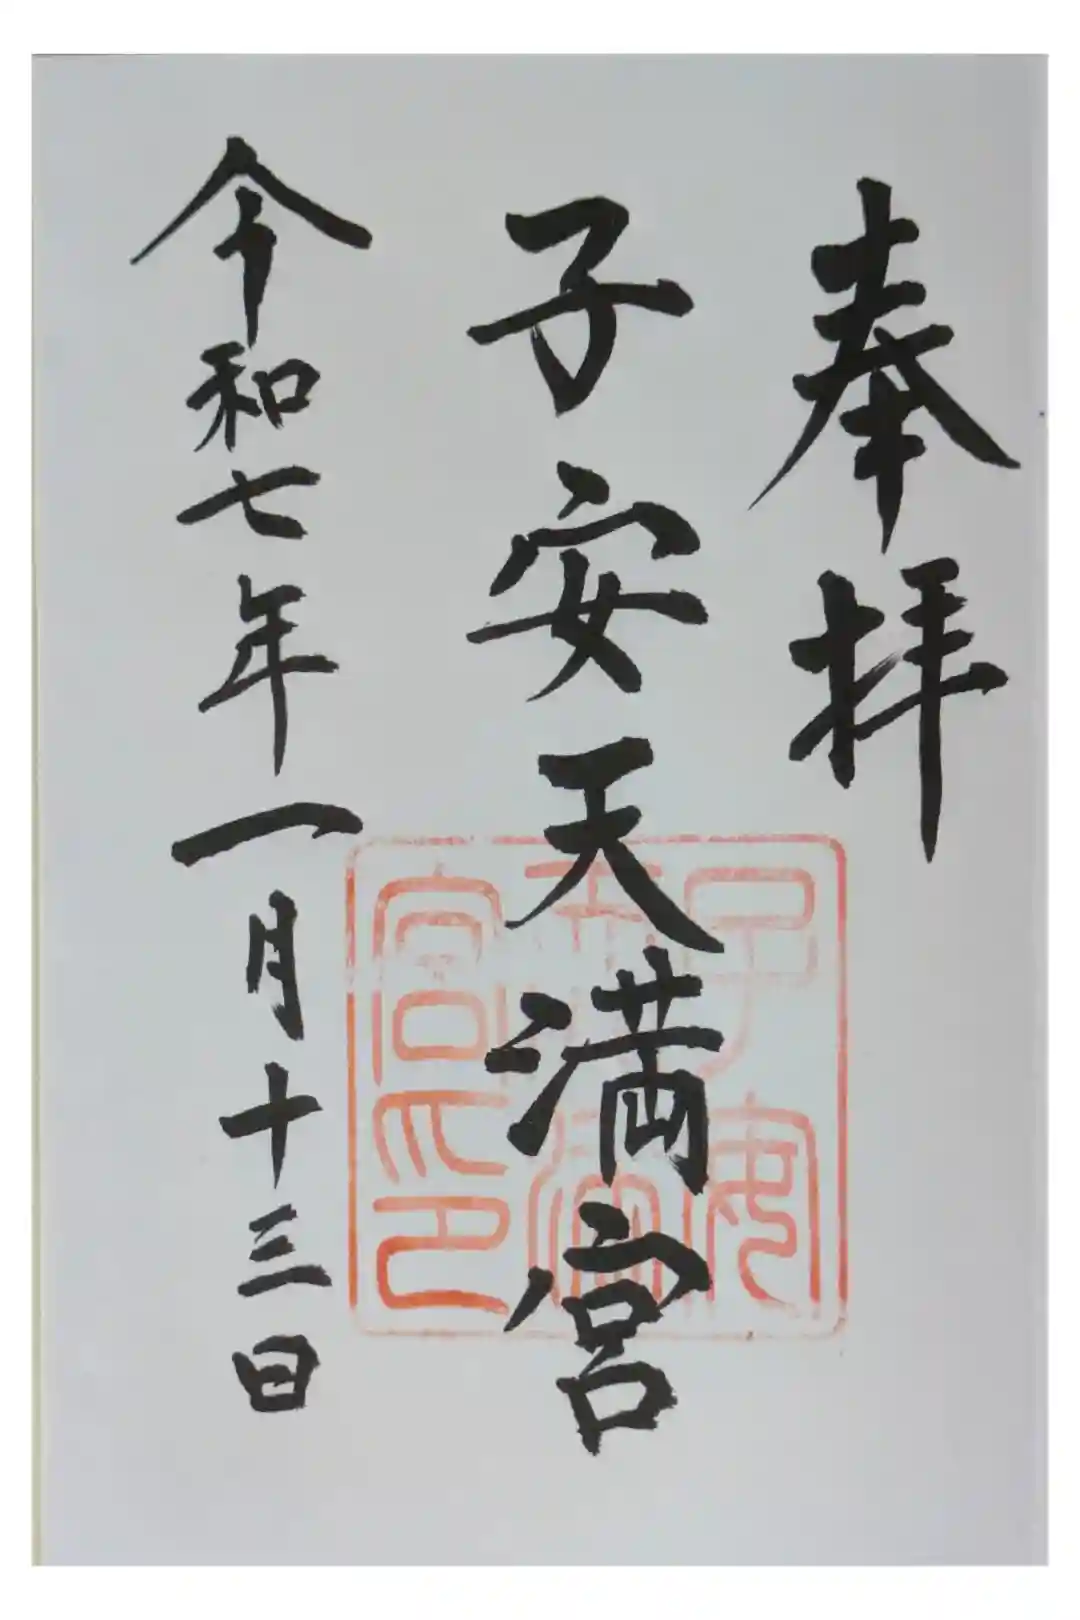 奉拝
子安天満宮
子安天満宮印
令和七年一月十三日